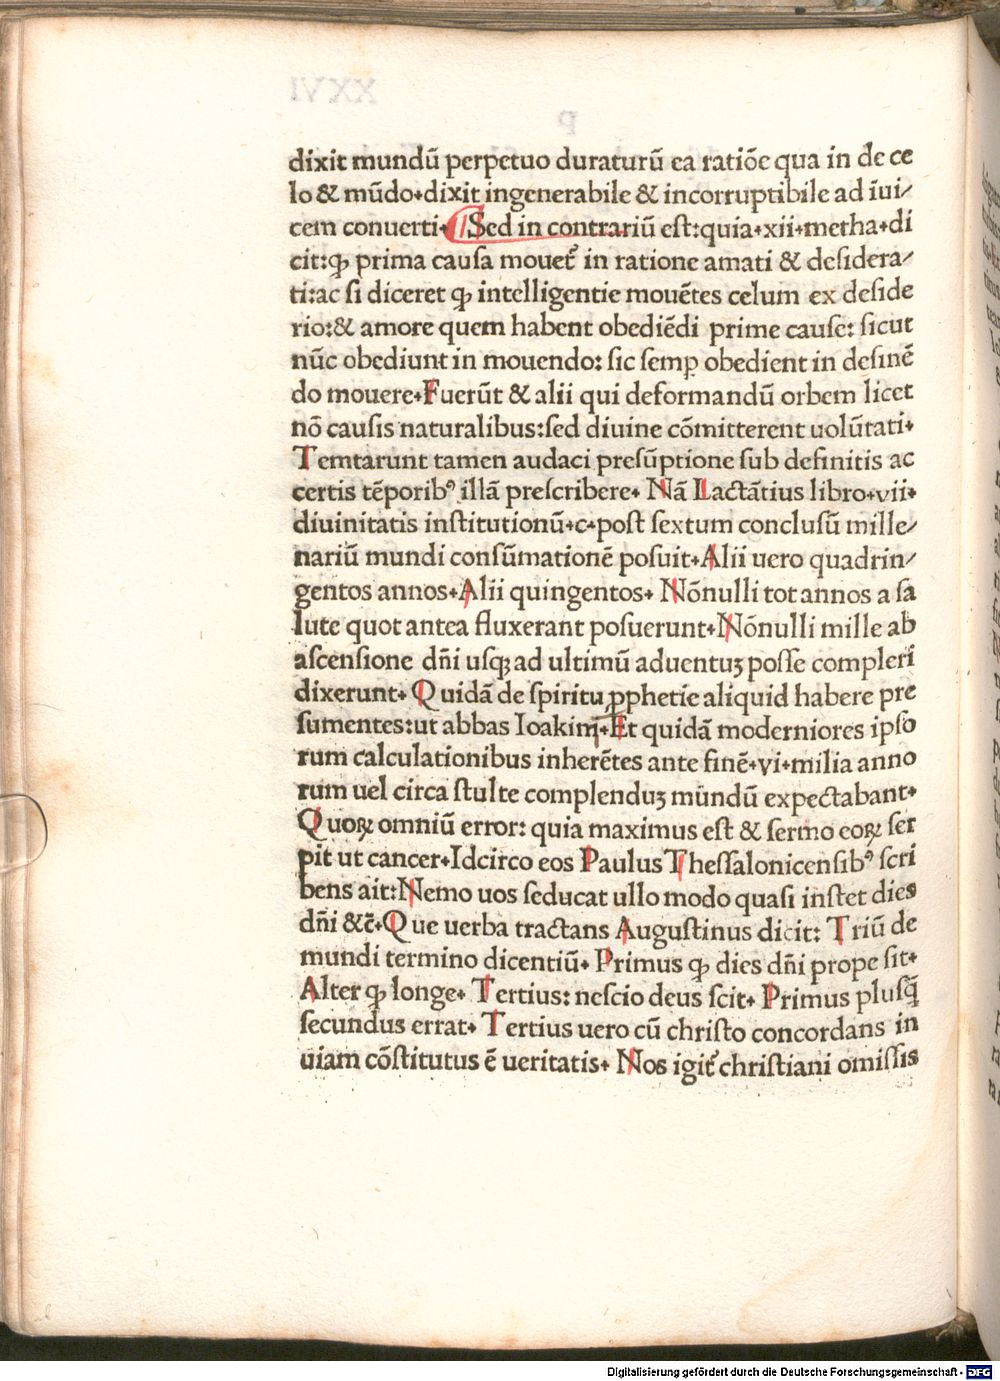 dixit mundū perpetuo duraturū ea ratiōe qua in de ce
lo & mūdo+dixit ingenerabile & incorruptibile ad īui/
cem conuerti+ ¶ Sed in contrariū est:quia+xii+metha+di
cit:ꝙ prima causa mouet᷑ in ratione amati & desidera/
ti:ac si diceret ꝙ intelligentie mouētes celum ex deside
rio:& amore quem habent obediēdi prime cause: sicut
nūc obediunt in mouendo: sic semꝑ obedient in desinē
do mouere+Fuerūt & alii qui deformandū orbem licet
nō causis naturalibus:sed diuine cōmitterent uolūtati+
Temtarunt tamen audaci presūptione sub definitis ac
certis tēporibꝰ illā prescribere+ Nā Lactātius libro+vii+
diuinitatis institutionū+c+post sextum conclusū mille/
nariū mundi consūmationē posuit+Alii uero quadrin/
gentos annos+Alii quingentos+ Nōnulli tot annos a sa
lute quot antea fluxerant posuerunt+Nōnulli mille ab
ascensione dn̄i usqꝫ ad ultimū aduentuꝫ posse compleri
dixerunt+ Quidā de spiritu ꝓphetie aliquid habere pre
sumentes:ut abbas Ioakim+Et quidā moderniores ipso
rum calculationibus inherētes ante finē+vi+milia anno
rum uel circa stulte complenduꝫ mundū expectabant+
Quoꝝ omniū error: quia maximus est & sermo eoꝝ ser
pit ut cancer+Idcirco eos Paulus Thessalonicensibꝰ scri
bens ait:Nemo uos seducat ullo modo quasi instet dies
dn̄i &c̄+Que uerba tractans Augustinus dicit: Triū de
mundi termino dicentiū+ Primus ꝙ dies dn̄i prope sit+
Alter ꝙ longe+ Tertius: nescio deus scit+ Primus plusq̄
secundus errat+ Tertius uero cū christo concordans in
uiam cōstitutus ē ueritatis+ Nos igit᷑ christiani omissis
Digitalisierung gefördert durch die Deutsche Forschungsgemeinschaft - DFG